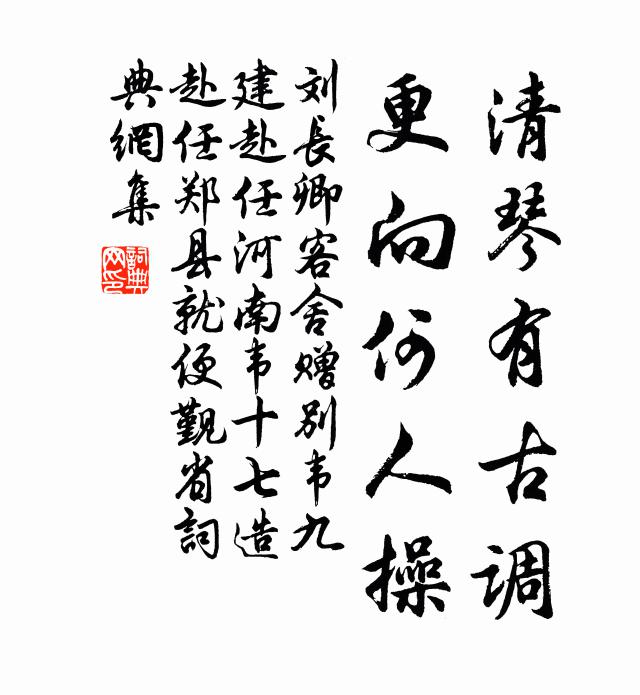 清琴有古调
更向何人操
刘长卿客舍赠别韦九
建赴任河南韦十七造
赴任郑县就便觐省詞
典網集
詞典
网印